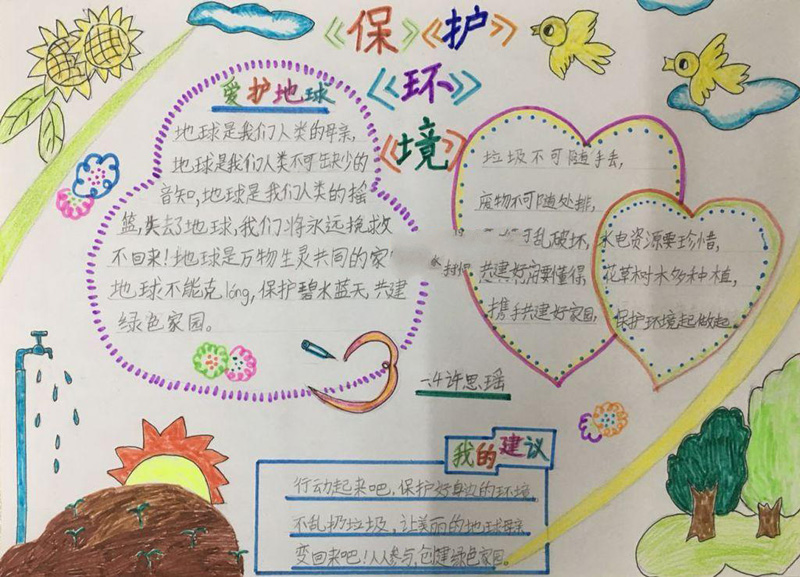 《保》《护》
《环》
《境》
爱护地球
地球是我们人类的母亲,
地球是我们人类不可缺少的
音知,地球是我们人类的摇
篮,失去了地球,我们将永远挽救
不回来!地球是万物生灵共同的家
地球不能克lóng,保护碧水蓝天,共建
绿色家园。
垃圾不可随手丢,
废物不可随处排,
可乱破坏,
共建好家要懂得,
携手共建好家园,
水电资源要珍惜,
花草树木多种植,
保护环境起做起。
六4许思瑶
我的建议
行动起来吧,保护好身边的环境
不乱扔垃圾,让美丽的地球母亲
变回来吧!人人参与,创建绿色家园。